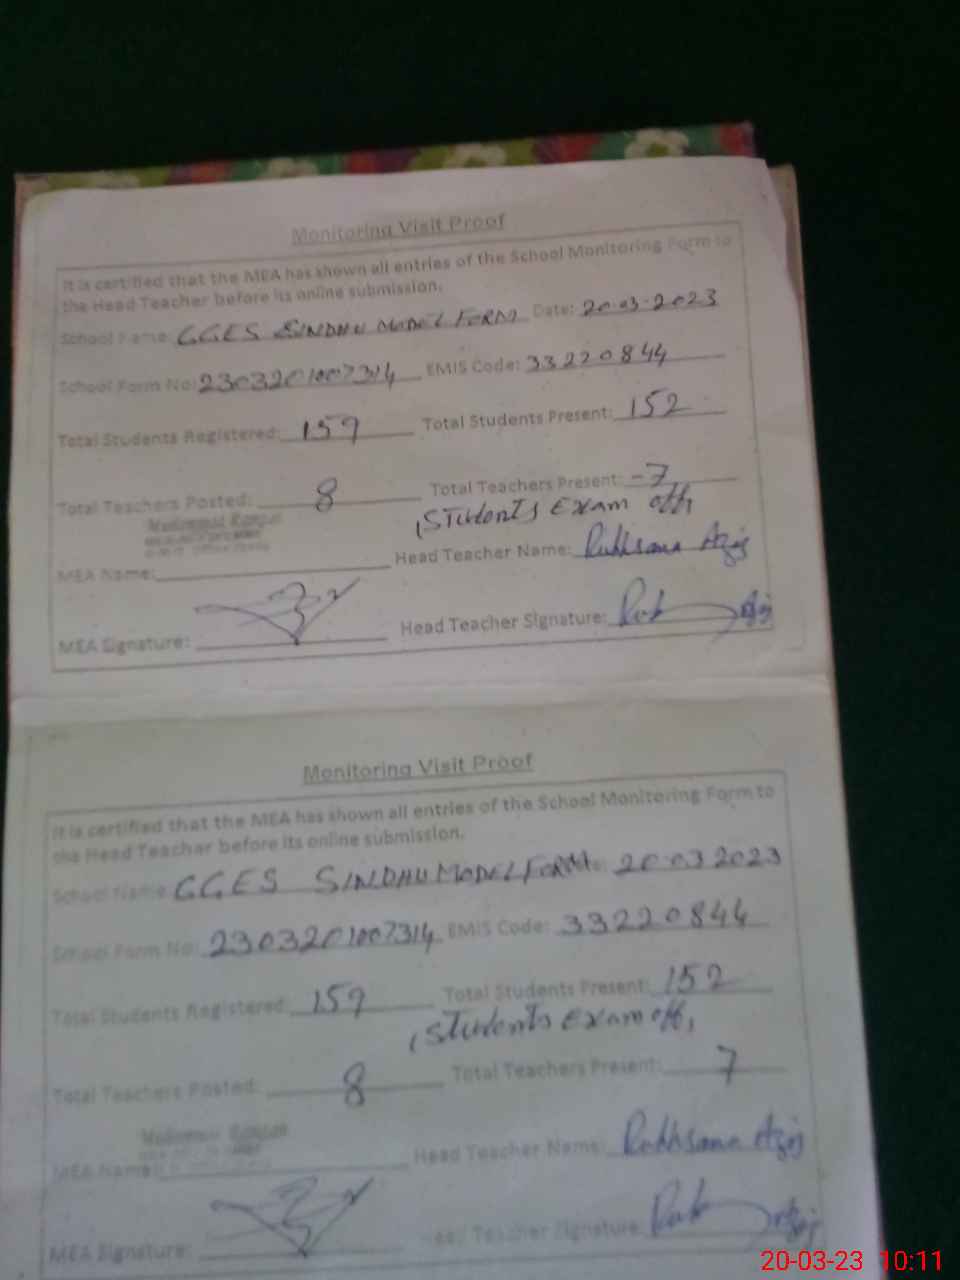 Monitoring Visit Proof
It is certified that the MEA has shown all entries of the School Monitoring Form to
the Head Teacher before its online submission.
School Name: GGES SINDHU MODEL FORM Date: 20-03-2023
School Form No: 2303201007314 EMIS Code: 33220844
Total Students Registered: 159 Total Students Present: 152
Total Teachers Posted: 8 Total Teachers Present: -7
(Students Exam off)
MEA Name: Head Teacher Name: Rukhsana Aziz
MEA Signature: Head Teacher Signature:
Monitoring Visit Proof
It is certified that the MEA has shown all entries of the School Monitoring Form to
the Head Teacher before its online submission.
School Name: GGES SINDHU MODEL FORM 20-03 2023
School Form No: 2303201007314 EMIS Code: 33220844
Total Students Registered: 159 Total Students Present: 152
(Students Exam off)
Total Teachers Posted: 8 Total Teachers Present: 7
MEA Name: Head Teacher Name: Rukhsana Aziz
MEA Signature: Head Teacher Signature:
20-03-23 10:11